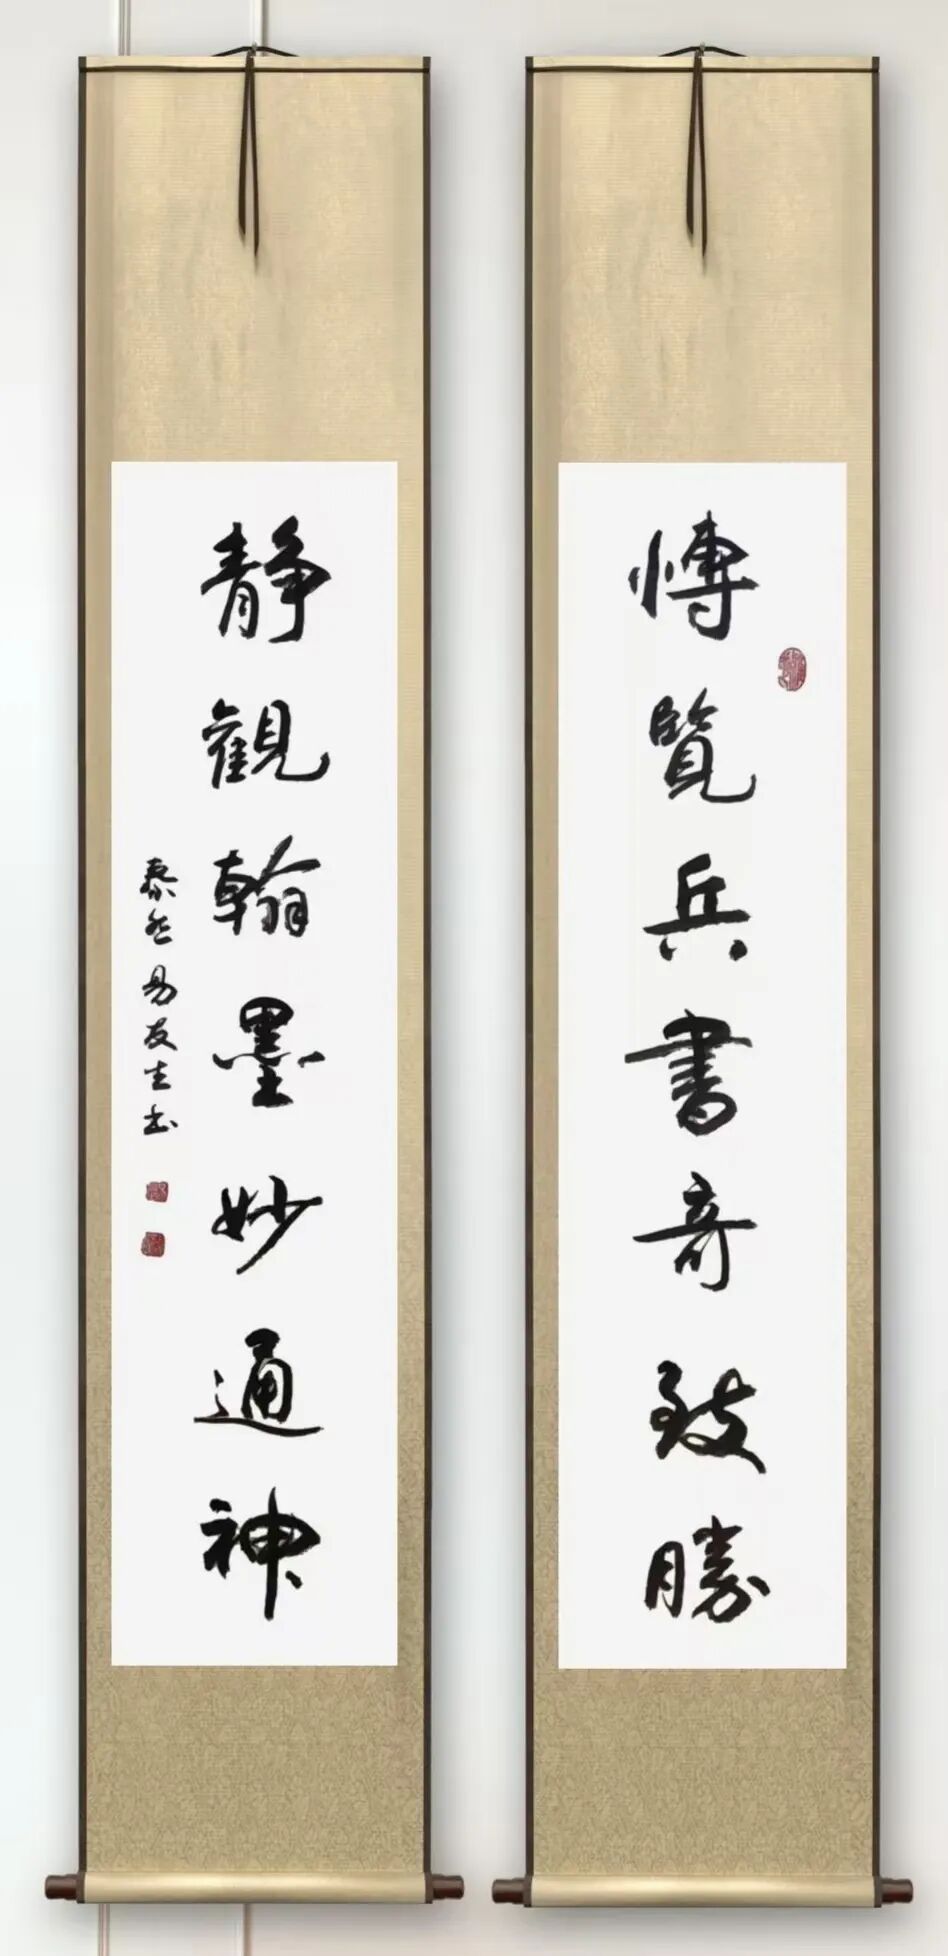 博覽兵書奇致勝
靜觀翰墨妙通神
泰然易友生书